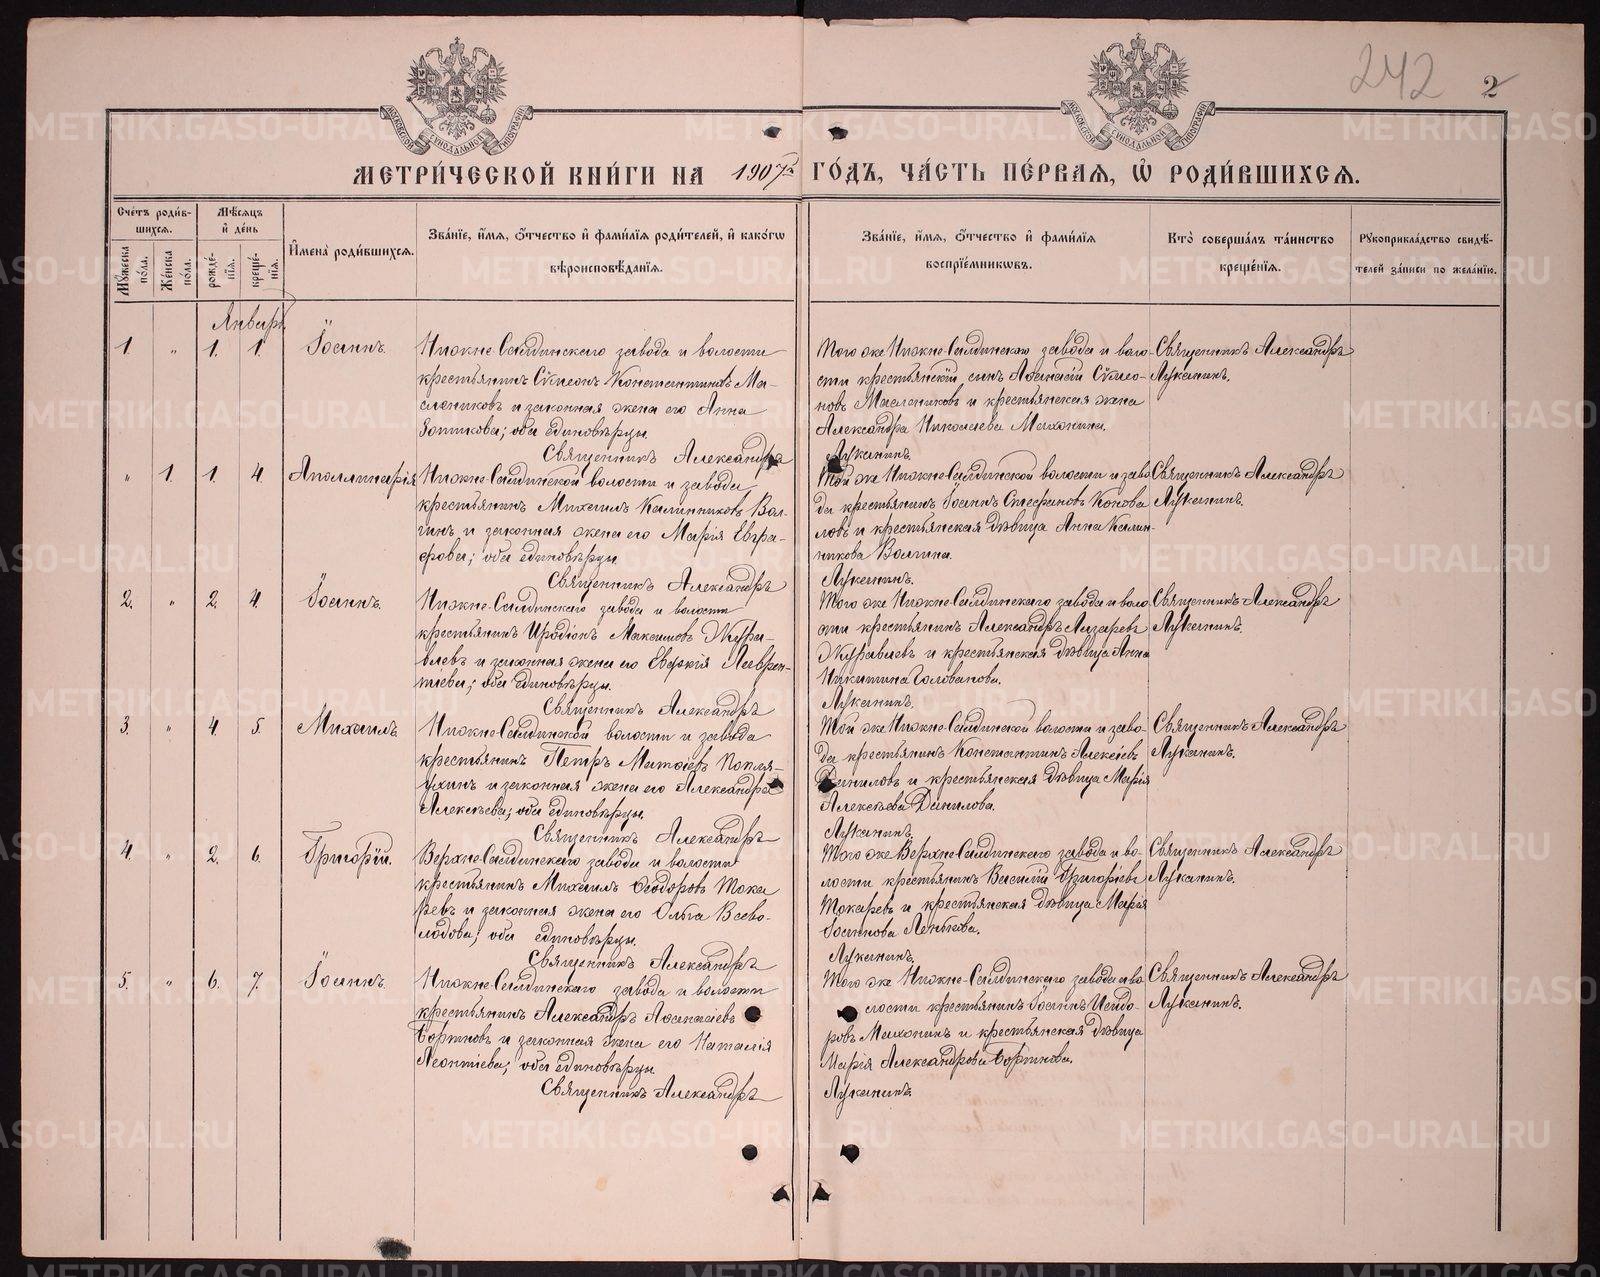 242 2
МОСКОВСКОЙ СѴНОДАЛЬНОЙ ТИПОГРАФІИ
МОСКОВСКОЙ СѴНОДАЛЬНОЙ ТИПОГРАФІИ
МЕТРИ́ЧЕСКОЙ КНИ́ГИ НА 1907й ГО́ДЪ, ЧА́СТЬ ПЕ́РВАЯ, Ѡ҆ РОДИ́ВШИХСѦ.
Сче́тъ роди́в-
шихсѧ.
Мꙋ́жеска по́ла.
Же́нска по́ла.
Мѣ́сѧцъ
и҆ де́нь
рожде́-
нїѧ.
креще́-
нїѧ.
И҆мена̀ роди́вшихсѧ.
Зва́нїе, и҆́мѧ, ѻ҆́тчество и҆ фами́лїѧ роди́телей, и҆ како́гѡ
вѣроисповѣ́данїѧ.
Зва́нїе, и҆́мѧ, ѻ҆́тчество и҆ фами́лїѧ
воспрїе́мникѡвъ.
Кто̀ соверша́лъ та́инство
креще́нїѧ.
Рꙋкоприкла́дство свидѣ́-
телей за́писи по жела́нїю.
Январь
1. " 1. 1. Іоаннъ.
Нижне-Салдинскаго завода и волости
крестьянинъ Сѵмеонъ Константиновъ Ма-
слениковъ и законная жена его Анна
Зотикова; оба единовѣрцы.
Священникъ Александръ
Того же Нижне-Салдинскаго завода и воло-
сти крестьянскій сынъ Аѳанасій Сѵмео-
новъ Маслениковъ и крестьянская жена
Александра Николаева Маханина.
Луканинъ.
Священникъ Александръ
Луканинъ.
" 1. 1. 4. Аполлинарія
Нижне-Салдинской волости и завода
крестьянинъ Михаилъ Калинниковъ Вол-
гинъ и законная жена его Марія Евгра-
фова; оба единовѣрцы
Священникъ Александръ
Той же Нижне-Салдинской волости и заво
да крестьянинъ Іоаннъ Стефановъ Конова
ловъ и крестьянская дѣвица Анна Калин-
никова Волгина.
Луканинъ.
Священникъ Александръ
Луканинъ.
2. " 2. 4. Іоаннъ.
Нижне-Салдинскаго завода и волости
крестьянинъ Иродіонъ Максимовъ Жура-
влевъ и законная жена его Евдокія Лаврен-
тіева; оба единовѣрцы.
Священникъ Александръ
Того же Нижне-Салдинскаго завода и воло
сти крестьянинъ Александръ Лазаревъ
Журавлевъ и крестьянская дѣвица Анна
Никитина Голованова.
Луканинъ.
Священникъ Александръ
Луканинъ.
3. " 4. 5. Михаилъ
Нижне-Салдинской волости и завода
крестьянинъ Петръ Матѳіевъ Покля-
ухинъ и законная жена его Александра
Алексѣева; оба единовѣрцы.
Священникъ Александръ
Той же Нижне-Салдинской волости и заво-
да крестьянинъ Константинъ Алексѣевъ
Даниловъ и крестьянская дѣвица Марія
Алексѣева Данилова.
Луканинъ.
Священникъ Александръ
Луканинъ.
4. " 2. 6. Григорій.
Верхне-Салдинскаго завода и волости
крестьянинъ Михаилъ Ѳеодоровъ Тока
ревъ и законная жена его Ольга Всево-
лодова; оба единовѣрцы.
Священникъ Александръ
Того же Верхне-Салдинскаго завода и во-
лости крестьянинъ Василій Григоріевъ
Токаревъ и крестьянская дѣвица Марія
Іоаннова Ленькова.
Луканинъ.
Священникъ Александръ
Луканинъ.
5. " 6. 7. Іоаннъ.
Нижне-Салдинскаго завода и волости
крестьянинъ Александръ Аѳанасіевъ
Бортновъ и законная жена его Наталія
Леонтіева; оба единовѣрцы
Священникъ Александръ
Того же Нижне-Салдинскаго завода и во
лости крестьянинъ Іоаннъ Исидо-
ровъ Маханинъ и крестьянская дѣвица
Марія Александрова Бортнова.
Луканинъ.
Священникъ Александръ
Луканинъ.
METRIKI.GASO-URAL.RU